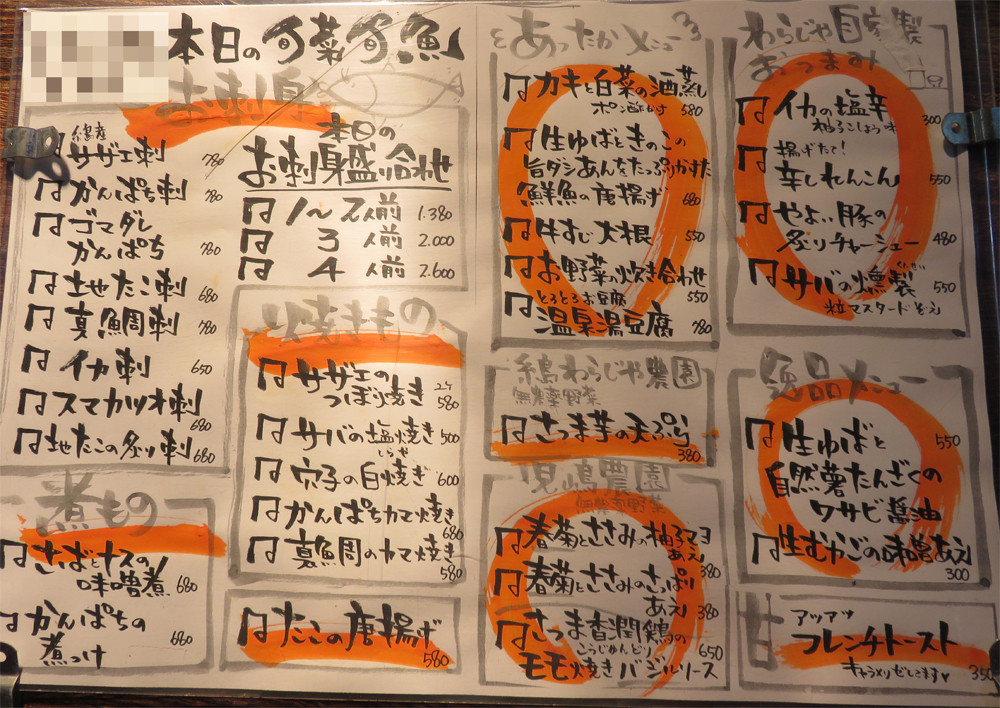 本日の旬菜旬魚
お刺身
糸島産
サザエ刺 780
かんぱち刺 780
ゴマダレ
かんぱち 780
地たこ刺 680
真鯛刺 780
イカ刺 650
スマカツオ刺 680
地たこの炙り刺 680
本日の
お刺身盛り合わせ
1~2人前 1.380
3人前 2.000
4人前 2.600
煮もの
さばとナスの
味噌煮 680
かんぱちの
煮つけ 680
焼きもの
サザエの
つぼ焼き 2ケ 580
サバの塩焼き 500
穴子の白焼き 600
かんぱちカマ焼き 680
真鯛のカマ焼き 580
たこの唐揚げ 580
あったかメニュー
カキと白菜の酒蒸し
ポン酢かけ 580
生ゆばときのこの
旨ダシあんをたっぷりかけた
鮮魚の唐揚げ 680
牛すじ大根 550
お野菜の炊き合わせ 550
とろとろお豆腐
温泉湯豆腐 780
糸島わらじや農園
無農薬野菜
さつま芋の天ぷら 380
児嶋農園
無農薬野菜
春菊とささみの柚子マヨ
あえ 380
春菊とささみのさっぱり
あえ 380
さつま香潤鶏の
こうじゅんどり 650
モモ焼きバジルソース
わらじや自家製
おつまみ
イカの塩辛 300
柚子こしょう味
揚げたて!
辛しれんこん 550
やよい豚の
炙りチャーシュー 480
サバの燻製 550
くんせい
粒マスタードぞえ
逸品メニュー
生ゆばと 550
自然薯たんざくの
ワサビ醤油
生むかごの味噌あえ
300
甘
アツアツ
フレンチトースト
キャラメリゼしてます♥ 350